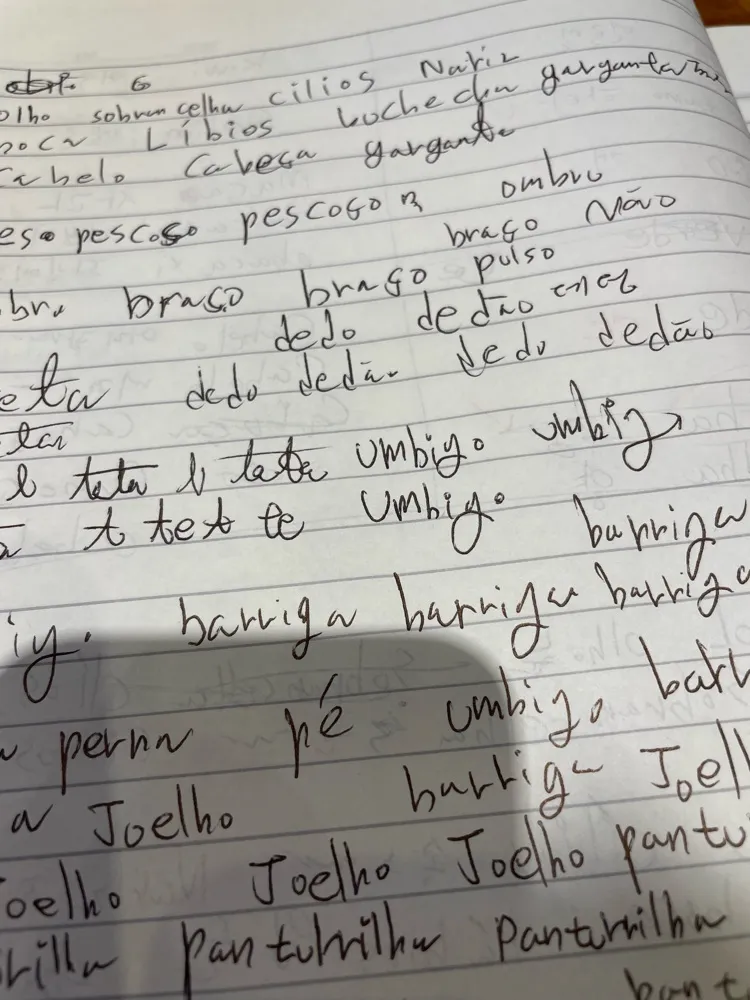 6
olho sobrancelha cilios Nariz
boca Líbios bochecha garganta
Cabelo Cabesa garganta
eso pescoso pescoso ombro
braço Mão
bro braço braço pulso
dedo dedão
eta dedo dedão dedo dedão
umbigo umbigo
t tet te Umbigo barriga
barriga barriga barriga
perna pé umbigo barr
a Joelho barriga Joel
oelho Joelho Joelho pantu
rilha panturrilha Panturrilha
pant